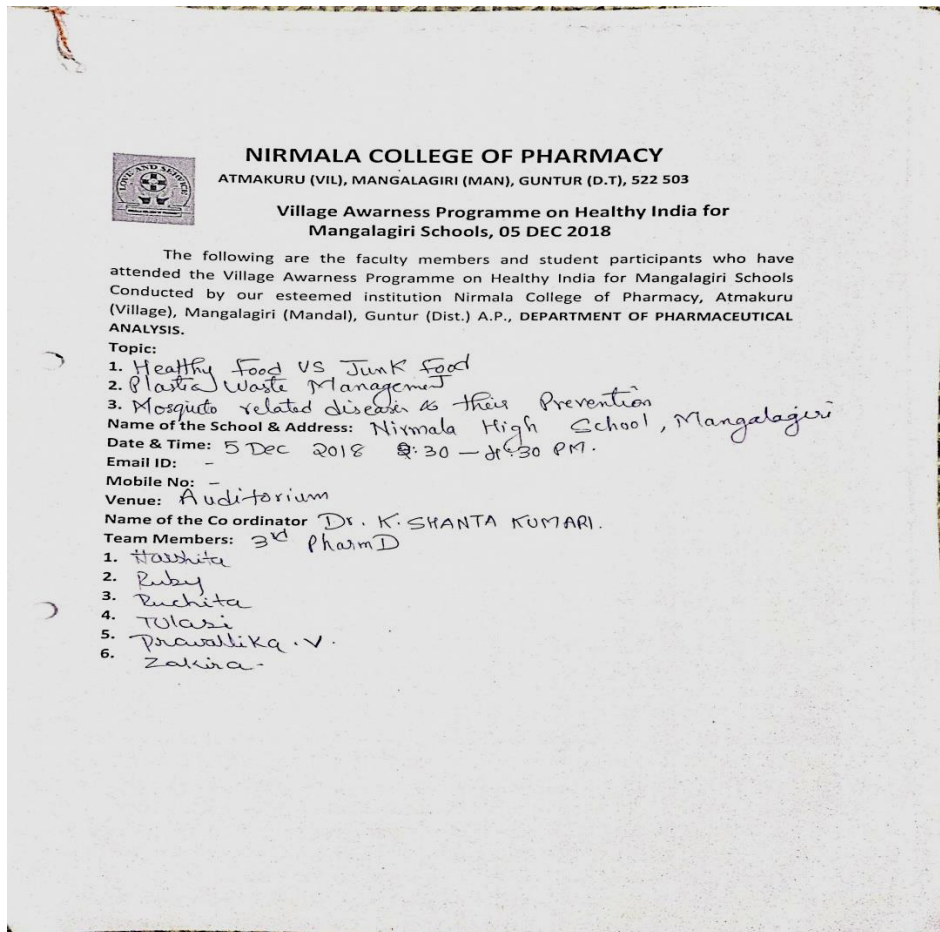 LOVE AND SERVICE
NIRMALA COLLEGE OF PHARMACY
ATMAKURU (VIL), MANGALAGIRI (MAN), GUNTUR (D.T), 522 503
Village Awarness Programme on Healthy India for
Mangalagiri Schools, 05 DEC 2018
The following are the faculty members and student participants who have
attended the Village Awarness Programme on Healthy India for Mangalagiri Schools
Conducted by our esteemed institution Nirmala College of Pharmacy, Atmakuru
(Village), Mangalagiri (Mandal), Guntur (Dist.) A.P., DEPARTMENT OF PHARMACEUTICAL
ANALYSIS.
Topic:
1. Healthy Food VS Junk Food
2. Plastic Waste Management
3. Mosquito related diseases & their Prevention
Name of the School & Address: Nirmala High School, Mangalagiri
Date & Time: 5 Dec 2018 :30 - :30 PM.
Email ID: -
Mobile No: -
Venue: Auditorium
Name of the Co ordinator Dr. K. SHANTA KUMARI.
Team Members: 3rd PharmD
1. Harshita
2. Ruby
3. Ruchita
4. Tulasi
5. Pravallika . V.
6. Zakira.